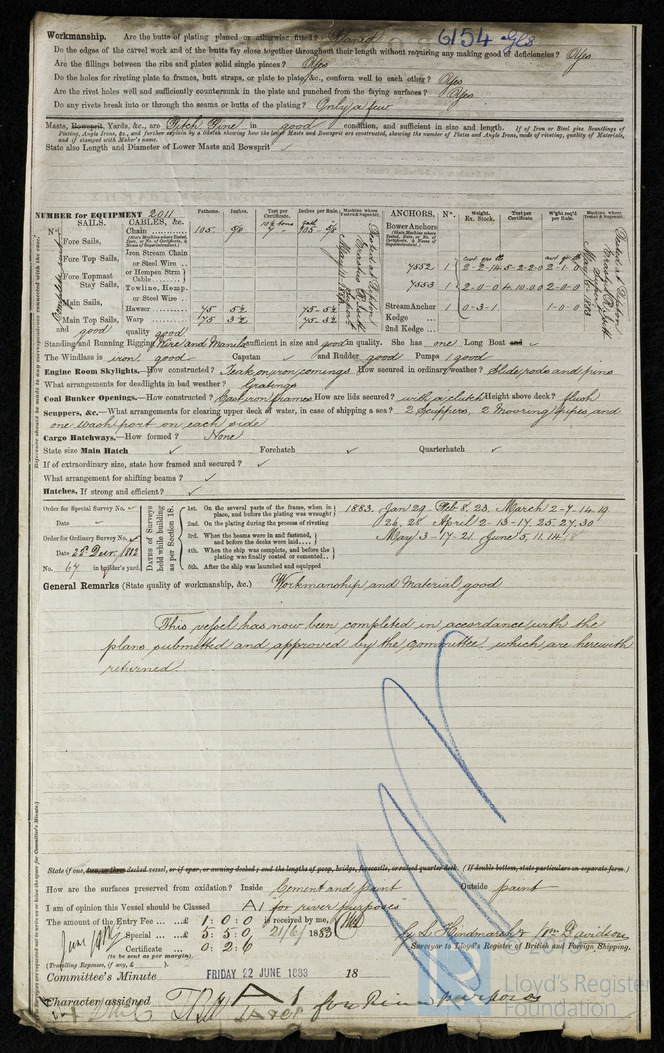 6154 Gls
Workmanship. Are the butts of plating planed or otherwise fitted? Planed
Do the edges of the carvel work and of the butts fay close together throughout their length without requiring any making good of deficiencies? Yes
Are the fillings between the ribs and plates solid single pieces? Yes
Do the holes for riveting plate to frames, butt straps, or plate to plate, &c., conform well to each other? Yes
Are the rivet holes well and sufficiently countersunk in the plate and punched from the faying surfaces? Yes
Do any rivets break into or through the seams or butts of the plating? Only a few
Masts, Bowsprit, Yards, &c., are Pitch Pine in good condition, and sufficient in size and length. If of Iron or Steel give Scantlings of
Plating, Angle Irons, &c., and further explain by a Sketch showing how the Masts and Bowsprit are constructed, showing the number of Plates and Angle Irons, mode of riveting, quality of Materials,
and if stamped with Maker's name.
State also Length and Diameter of Lower Masts and Bowsprit
NUMBER for EQUIPMENT 2011
SAILS. CABLES, &c. Fathoms. Inches. Test per Certificate. Inches per Rule. Machine where Tested & Superint. ANCHORS. No. Weight. Ex. Stock. Test per Certificate. W'ght req'd per Rule. Machine where Tested & Superint.
Chain 105
Fore Sails,
Fore Top Sails,
Fore Topmast Stay Sails,
Main Sails,
Main Top Sails,
and good quality good
Iron Stream Chain
or Steel Wire
or Hempen Strm Cable
Towline, Hemp.
or Steel Wire
Hawser 75 5½ 75-5½
Warp 75 3½ 75-3½
Bower Anchors
7552 1 2-2-14 5-2-2-0 2-1-0
7553 1 2-0-0 4.10.0.0 2-0-0
Stream Anchor 1 0-3-1 1-0-0
Kedge
2nd Kedge
Standing and Running Rigging Wire and Manila sufficient in size and good in quality. She has one Long Boat and
The Windlass is iron good Capstan and Rudder good Pumps good
Engine Room Skylights.—How constructed? Teak on iron comings How secured in ordinary weather? Slide rods and pins
What arrangements for deadlights in bad weather? Gratings
Coal Bunker Openings.—How constructed? Cast iron frames How are lids secured? with a clutch Height above deck? flush
Scuppers, &c.—What arrangements for clearing upper deck of water, in case of shipping a sea? 2 Scuppers, 2 Mooring pipes, and
one wash port on each side
Cargo Hatchways.—How formed? None
State size Main Hatch Forehatch Quarterhatch
If of extraordinary size, state how framed and secured?
What arrangement for shifting beams?
Hatches. If strong and efficient?
Order for Special Survey No.
Date
Order for Ordinary Survey No.
Date 22 Decr. 1882
No. 67 in builder's yard.
DATES of Surveys held while building as per Section 18.
1st. On the several parts of the frame, when in place, and before the plating was wrought
2nd. On the plating during the process of riveting
3rd. When the beams were in and fastened, and before the decks were laid
4th. When the ship was complete, and before the plating was finally coated or cemented
5th. After the ship was launched and equipped
1883. Jan 29 Feb 8. 23, March 2-7-14-19
26, 28 April 2-13-17 25. 27, 30
May 3-17-21. June 5, 11, 14
General Remarks (State quality of workmanship, &c.) Workmanship and Material good
This vessel has now been completed in accordance with the
plans submitted and approved by the Committee which are herewith
returned.
State if one, two, or three decked vessel, or if spar, or awning decked; and the lengths of poop, bridge, forecastle, or raised quarter deck. (If double bottom, state particulars on separate form.)
How are the surfaces preserved from oxidation? Inside Cement and paint Outside paint
I am of opinion this Vessel should be Classed A1 "for river purposes"
The amount of the Entry Fee £ 1 : 0 : 0 is received by me,
Special £ 5 : 5 . 0 21/6/1883
Certificate 0 : 2 . 6
(to be sent as per margin).
(Travelling Expenses, if any, £ ).
G. L. Hindmarsh & Wm Davidson
Surveyor to Lloyd's Register of British and Foreign Shipping.
Committee's Minute FRIDAY 22 JUNE 1883 18
Character assigned A1 for River purposes
Lloyd's Register
Foundation